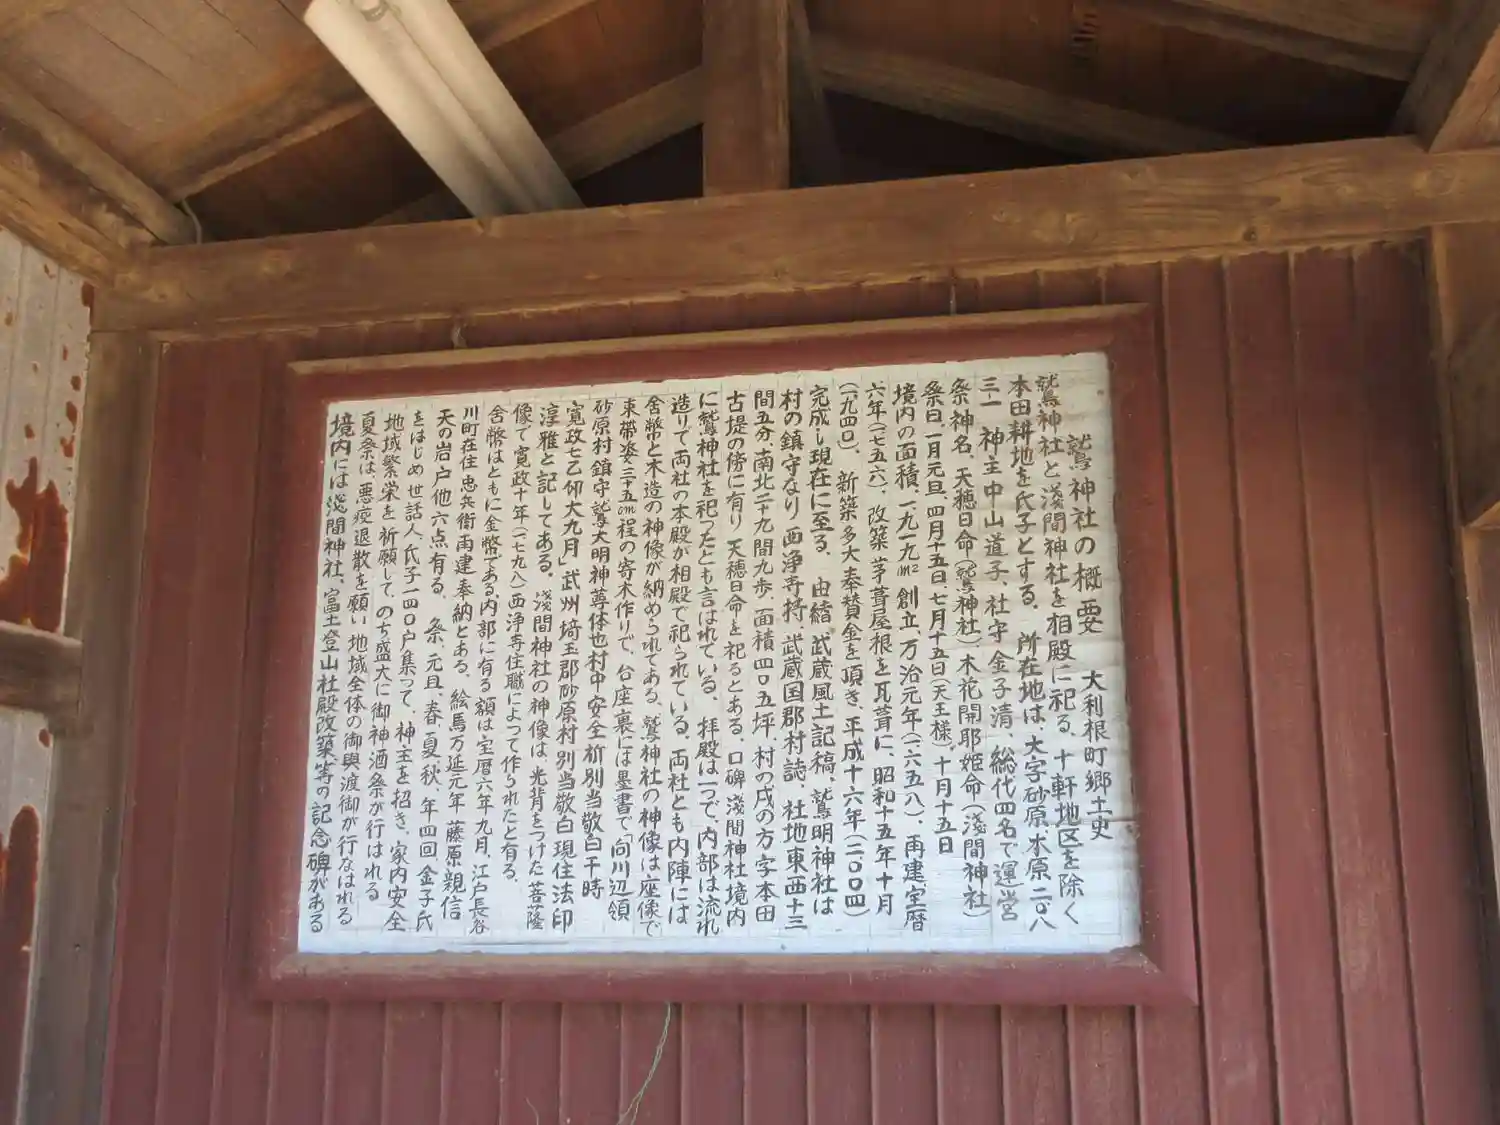 鷲神社の概要　大利根町郷土史
鷲神社と淺間神社を相殿に祀る、十軒地区を除く
本田耕地を氏子とする、所在地は、大字砂原本原二〇八
三ー一　神主中山道子、社守、金子清、総代四名で運営
祭神名、天穂日命(鷲神社)、木花開耶姫命(淺間神社)
祭日、一月元旦、四月十五日、七月十五日(天王様)、十月十五日
境内の面積、一、九一九㎡　創立、万治元年(一六五八)、再建、宝暦
六年(一七五六)、改築、茅葺屋根を瓦葺に、昭和十五年十月
(一九四〇)、新築多大奉賛金を頂き、平成十六年(二〇〇四)
完成し現在に至る、　由緒、武蔵風土記稿、鷲明神社は
村の鎮守なり　西浄寺持、武蔵国郡村誌、社地東西十三
間五分、南北二十九間九歩、面積四〇五坪、村の戌の方字本田
古堤の傍に有り　天穂日命を祀るとある、口碑、淺間神社境内
に鷲神社を祀ったとも言はれている、　拝殿は一つで、内部は流れ
造りで両社の本殿が相殿で祀られている、両社とも内陣には
金幣と木造の神像が納められてある、鷲神社の神像は座像で
束帯姿三十五㎝程の寄木作りで、台座裏には墨書で、向川辺領
砂原村鎮守鷲大明神尊体也村中安全祈別当敬白干時
寛政七乙卯大九月」武州埼玉郡砂原村別当敬白現住法印
淳雅と記してある、　淺間神社の神像は、光背をつけた菩薩
像で寛政十年(一七九八)西浄寺住職によって作られたと有る、
金幣はともに金幣である、内部に有る額は宝暦六年九月、江戸長谷
川町在住　忠兵衛再建奉納とある、　絵馬万延元年　藤原親信
天の岩戸他六点有る、　祭、元旦、春、夏、秋、年四回　金子氏
をはじめ世話人、氏子一四〇戸集って、神主を招き、家内安全
地域繁栄を祈願して、のち盛大に御神酒祭が行はれる
夏祭は、悪疫退散を願い　地域全体の御輿渡御が行なはれる
境内には淺間神社、富士登山社殿改築、等の記念碑がある